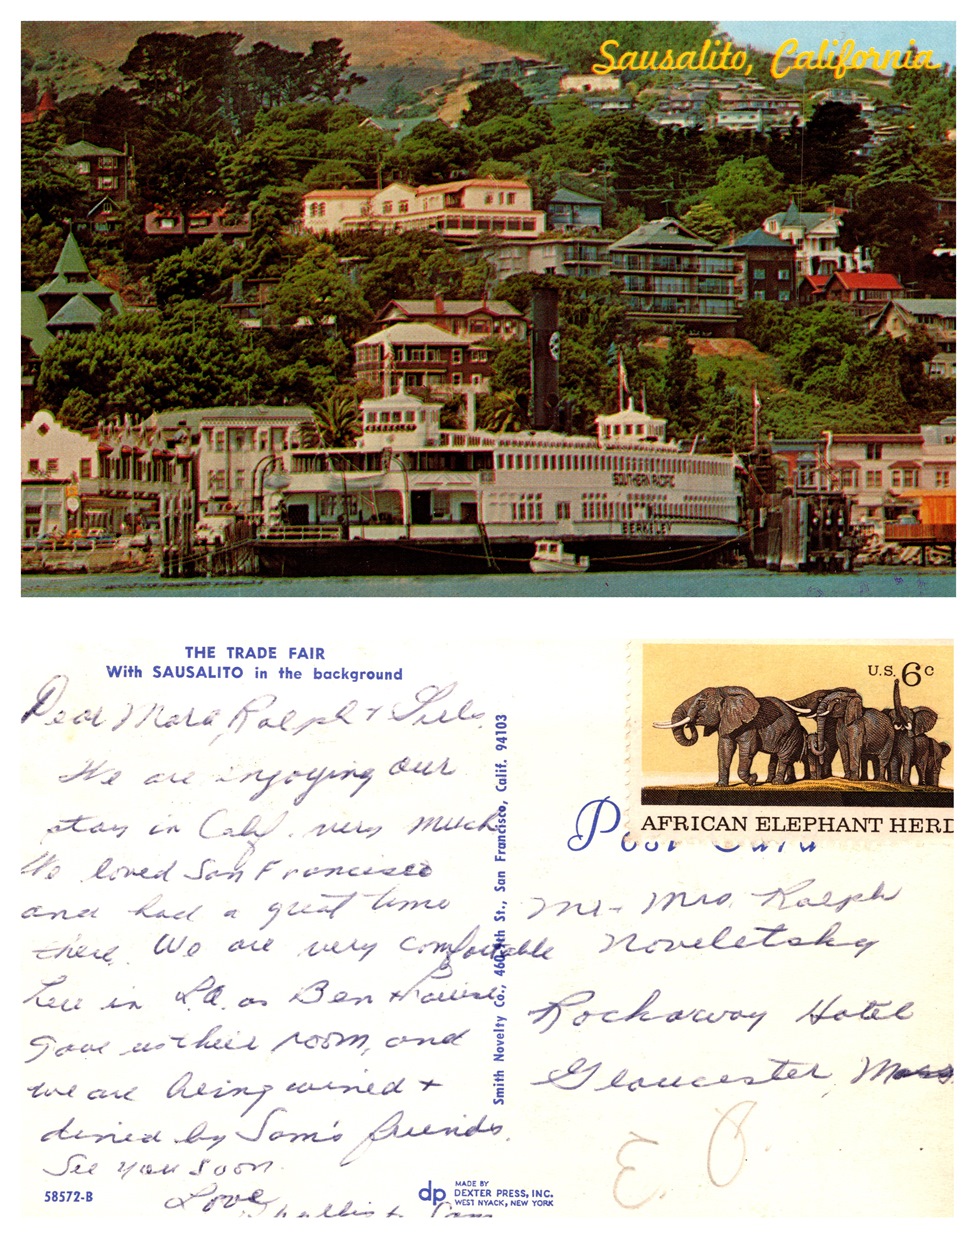 Sausalito, California
SOUTHERN PACIFIC
BERKELEY
THE TRADE FAIR
With SAUSALITO in the background
Dear Mara, Ralph +
We are injoying our
stay in Calif. very much
We loved San Francisco
and had a great time
there. We are very comfortable
here in L.A. as Ben +
gave us their room, and
we are being wined +
dined by Sam's friends.
See you soon.
Love
Phyllis +
58572-B
dp
MADE BY
DEXTER PRESS, INC.
WEST NYACK, NEW YORK
Smith Novelty Co., 460 9th St., San Francisco, Calif. 94103
U.S. 6c
AFRICAN ELEPHANT HERD
Post Card
Mr - Mrs. Ralph
Noveletsky
Rockaway Hotel
Gloucester, Mass
E. P.